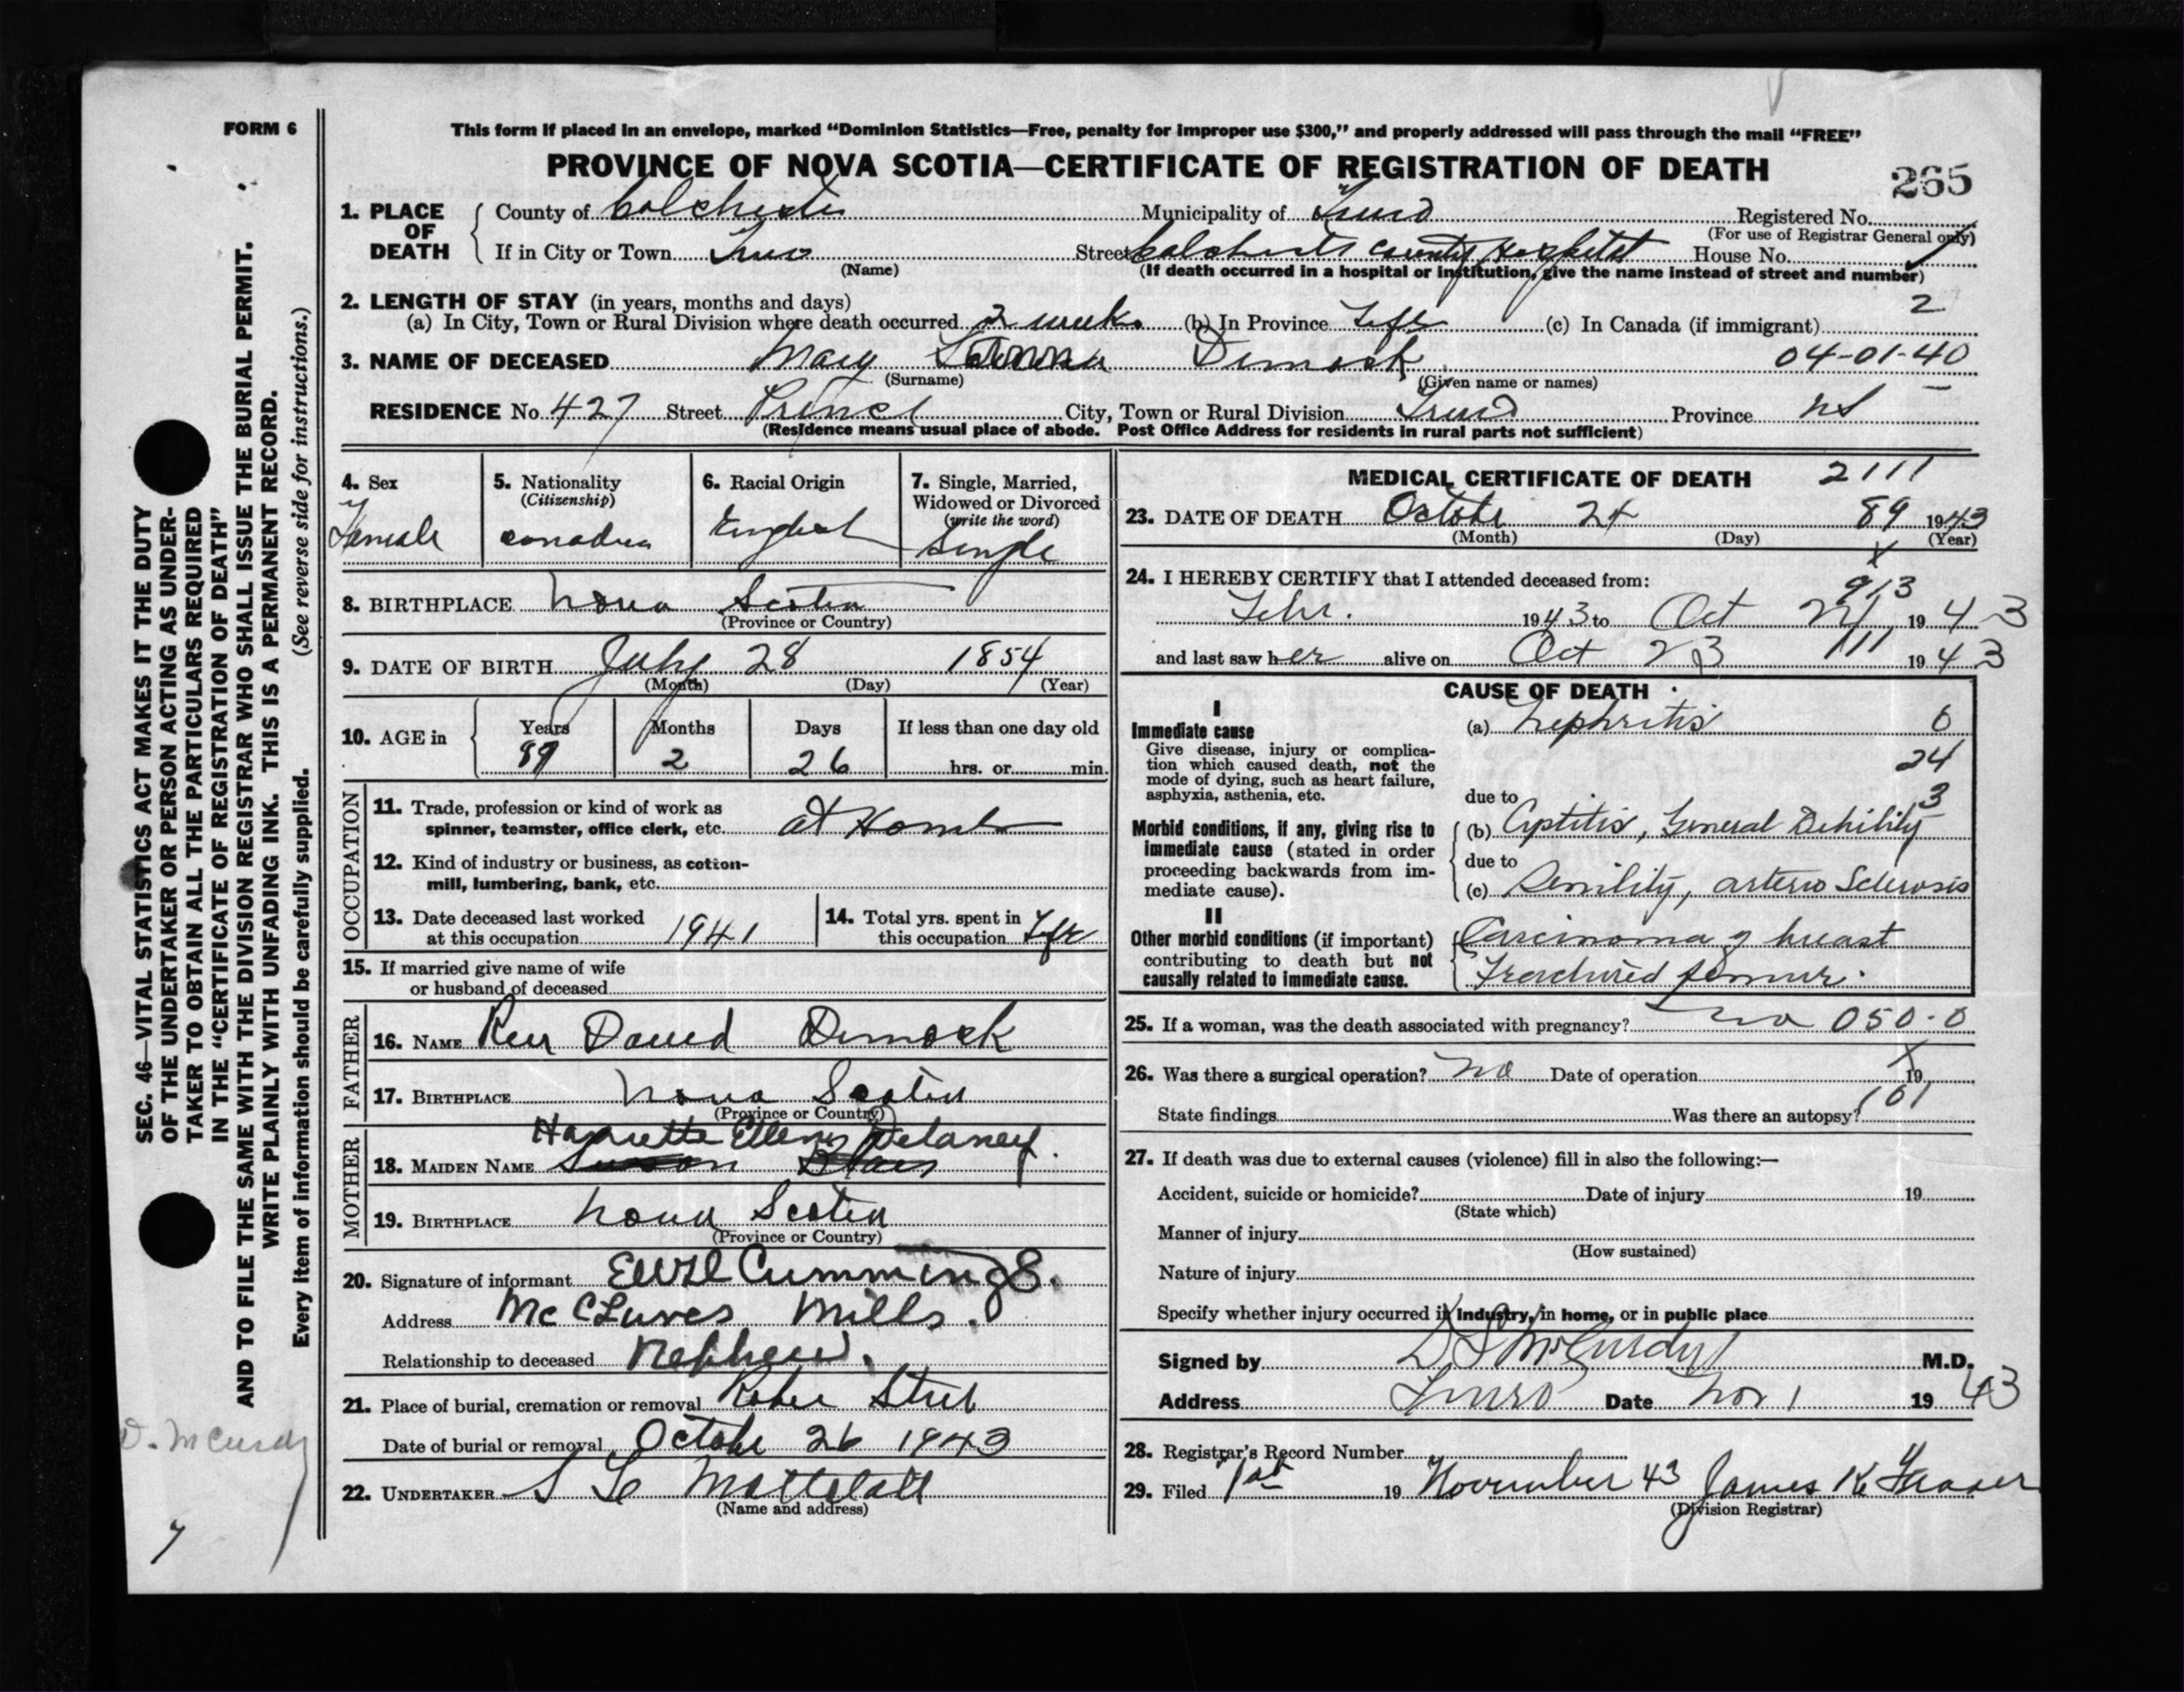 FORM 6
This form if placed in an envelope, marked “Dominion Statistics—Free, penalty for improper use $300,” and properly addressed will pass through the mail “FREE”
PROVINCE OF NOVA SCOTIA—CERTIFICATE OF REGISTRATION OF DEATH
265
1. PLACE OF DEATH
County of Colchester Municipality of Truro Registered No.
(For use of Registrar General only)
If in City or Town Truro Street Colchester County Hospital House No.
(Name)
(If death occurred in a hospital or institution, give the name instead of street and number)
2. LENGTH OF STAY (in years, months and days)
2
(a) In City, Town or Rural Division where death occurred 2 weeks (b) In Province Life (c) In Canada (if immigrant)
3. NAME OF DECEASED Mary Dimock 04-01-40
(Surname) (Given name or names)
RESIDENCE No. 427 Street Prince City, Town or Rural Division Truro Province NS
(Residence means usual place of abode. Post Office Address for residents in rural parts not sufficient)
4. Sex
Female
5. Nationality
(Citizenship)
Canadian
6. Racial Origin
English
7. Single, Married,
Widowed or Divorced
(write the word)
Single
8. BIRTHPLACE Nova Scotia
(Province or Country)
9. DATE OF BIRTH July 28 1854
(Month) (Day) (Year)
10. AGE in
Years Months Days If less than one day old
89 2 26 hrs. or min.
OCCUPATION
11. Trade, profession or kind of work as
spinner, teamster, office clerk, etc. at Home
12. Kind of industry or business, as cotton-
mill, lumbering, bank, etc.
13. Date deceased last worked
at this occupation 1941
14. Total yrs. spent in
this occupation Life
15. If married give name of wife
or husband of deceased
FATHER
16. NAME Rev David Dimock
17. BIRTHPLACE Nova Scotia
(Province or Country)
MOTHER
Harriette Ellen Delaney.
18. MAIDEN NAME Susan
19. BIRTHPLACE Nova Scotia
(Province or Country)
20. Signature of informant Cummings.
Address McClures Mills.
Relationship to deceased Nephew.
21. Place of burial, cremation or removal Robie Street
Date of burial or removal October 26 1943
22. UNDERTAKER
(Name and address)
MEDICAL CERTIFICATE OF DEATH 2111
23. DATE OF DEATH October 24 89 1943
(Month) (Day) (Year)
24. I HEREBY CERTIFY that I attended deceased from:
913
Febr. 1943 to Oct 24 1943
111
and last saw her alive on Oct 23 1943
CAUSE OF DEATH
I
Immediate cause
Give disease, injury or complica-
tion which caused death, not the
mode of dying, such as heart failure,
asphyxia, asthenia, etc.
(a) Nephritis 6
24
3
due to
Morbid conditions, if any, giving rise to
immediate cause (stated in order
proceeding backwards from im-
mediate cause).
(b) Cystitis, General Debility
due to
(c) Senility, arterio Sclerosis
II
Other morbid conditions (if important)
contributing to death but not
causally related to immediate cause.
Carcinoma of breast
Fractured femur.
25. If a woman, was the death associated with pregnancy? no 050-0
26. Was there a surgical operation? no Date of operation 19
101
State findings Was there an autopsy?
27. If death was due to external causes (violence) fill in also the following:—
Accident, suicide or homicide? Date of injury 19
(State which)
Manner of injury
(How sustained)
Nature of injury
Specify whether injury occurred in industry, in home, or in public place
Signed by D S McCurdy M.D.
Address Truro Date Nov 1 1943
28. Registrar's Record Number
29. Filed 1st 19 November 43 James K Fraser
(Division Registrar)
SEC. 46—VITAL STATISTICS ACT MAKES IT THE DUTY
OF THE UNDERTAKER OR PERSON ACTING AS UNDER-
TAKER TO OBTAIN ALL THE PARTICULARS REQUIRED
IN THE “CERTIFICATE OF REGISTRATION OF DEATH”
AND TO FILE THE SAME WITH THE DIVISION REGISTRAR WHO SHALL ISSUE THE BURIAL PERMIT.
WRITE PLAINLY WITH UNFADING INK. THIS IS A PERMANENT RECORD.
Every item of information should be carefully supplied. (See reverse side for instructions.)
D. McCurdy